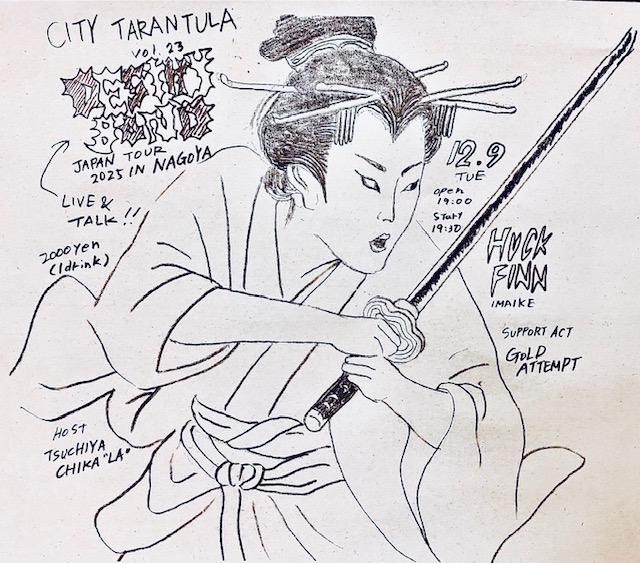 CITY TARANTULA
vol.23
BAND
JAPAN TOUR
2025 IN NAGOYA
LIVE &
TALK!!
2000yen
(1drink)
12.9
TUE
open
19:00
start
19:30
HUCK
FINN
IMAIKE
SUPPORT ACT
GOLD
ATTEMPT
HOST
TSUCHIYA
CHIKA "LA"